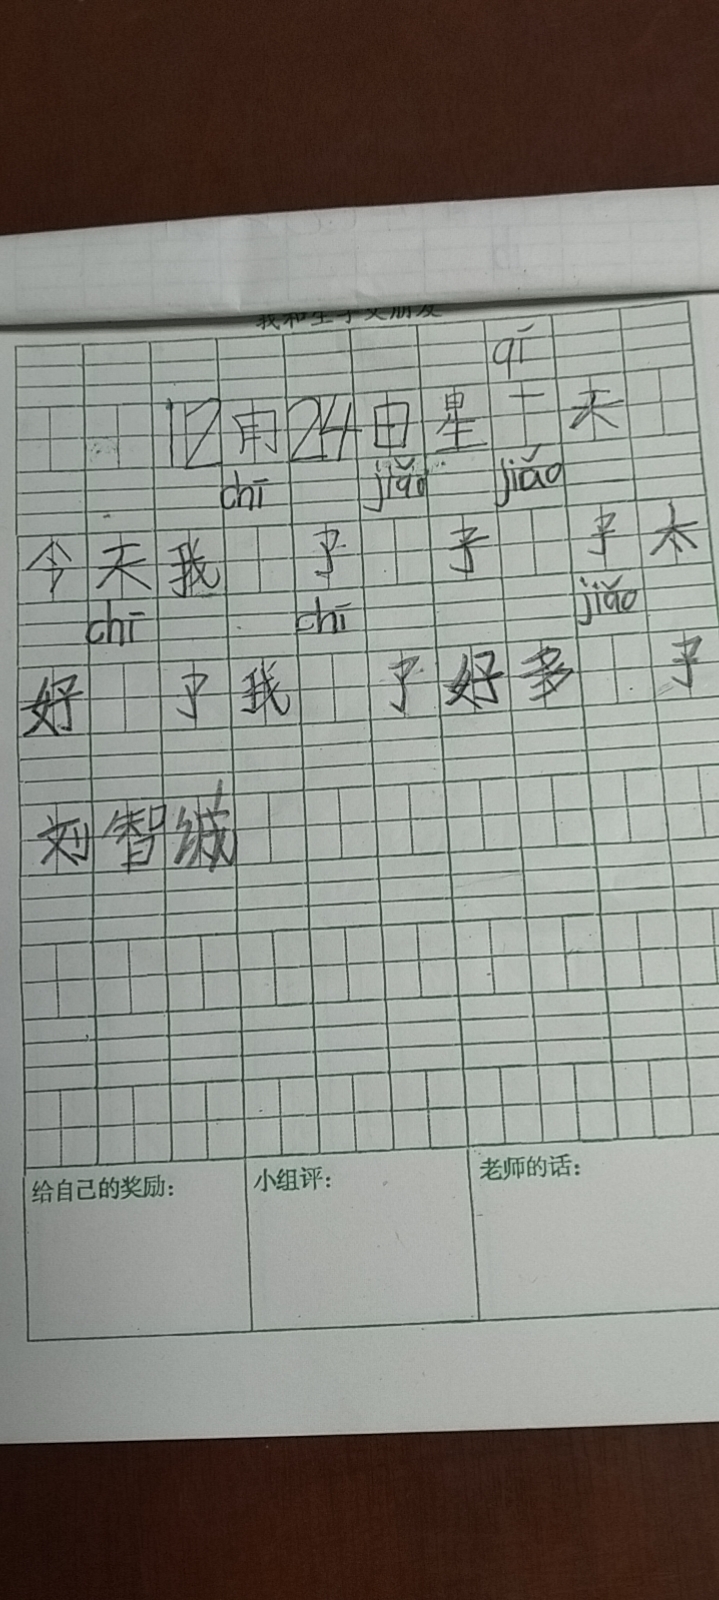 我和生字交朋友
qī
12月24日星 天
chī jiǎo jiǎo
今天我 了 子 子太
chī chī jiǎo
好 了我 了好多 子
刘智
给自己的奖励: 小组评: 老师的话: